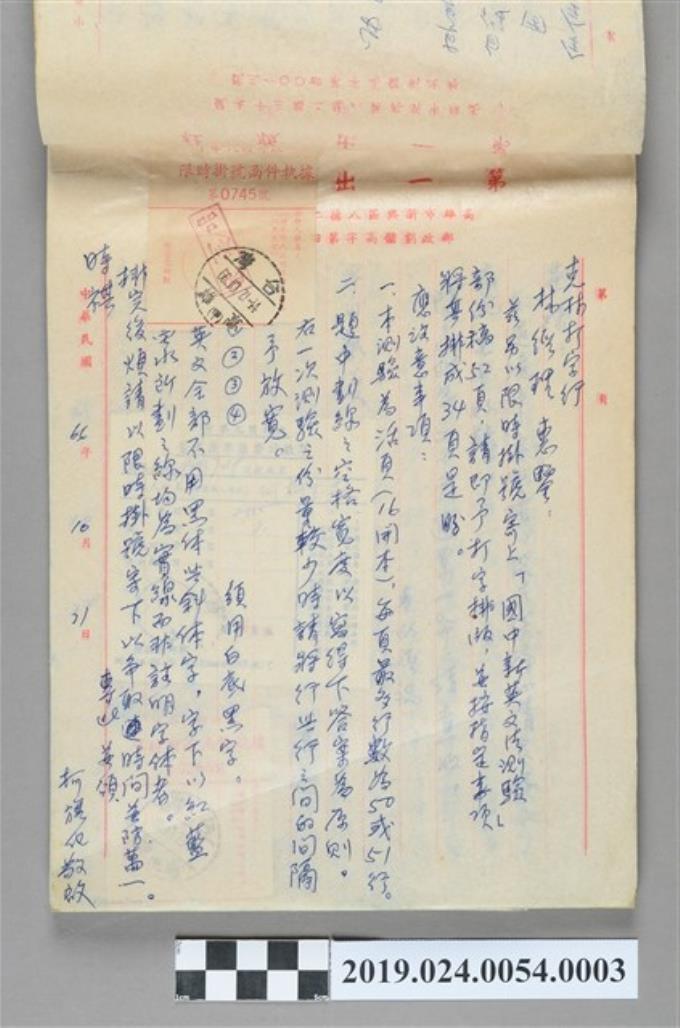 限時掛號函件執據
第0745號
第一出
高雄市新興區八德二
郵政劃儲高字第四
第 頁
克林打字行
林經理 惠鑒：
茲另以限時掛號寄上「國中新英文法測驗」
部份稿52頁，請即予打字排版，並按指定事項
將其排成34頁是盼。
應注意事項：
一、本測驗為活頁(16開本)，每頁最多行數為50或51行。
二、題中劃線之空格寬度以寫得下答案為原則。
右一次測驗之份量較少時請將行與行之間的間隔
予放寬。
①②③④ 須用白底黑字。
英文全部不用黑体與斜体字，字下以紅藍
來所劃之線均為實線而非註明字体者。
排完後煩請以限時掛號寄下以爭取時間並防萬一。
專此 並頌
時祺
柯旗化敬啟
中華民國 66年 10月 31日
台灣
2019.024.0054.0003
1cm
5cm